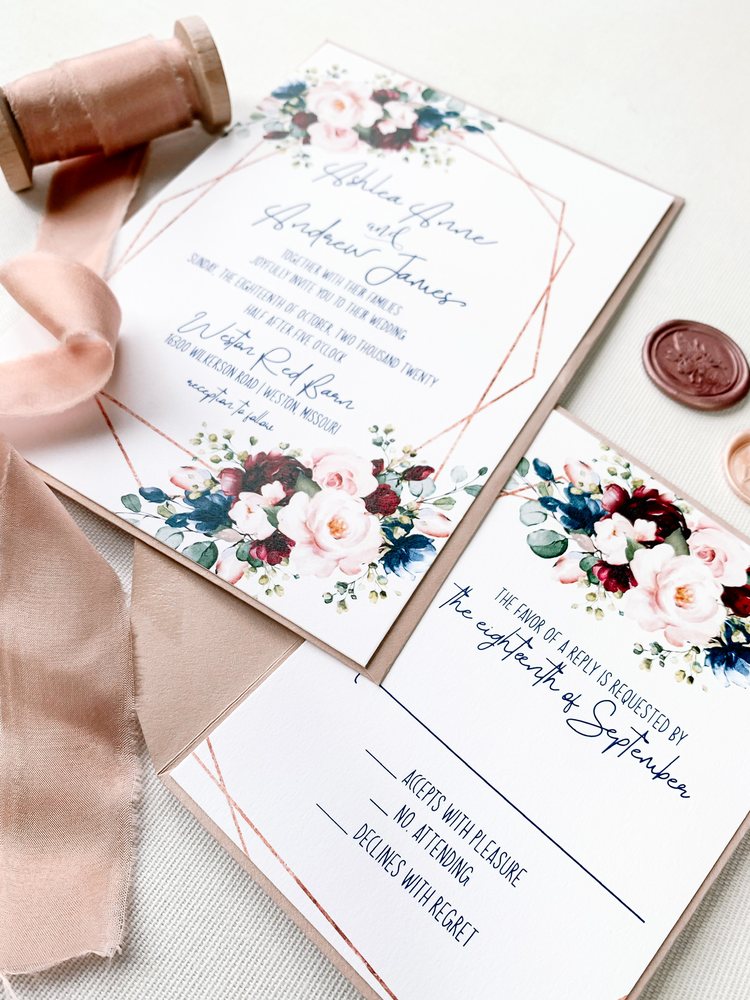 Ashlea Anne
and
Andrew James
TOGETHER WITH THEIR FAMILIES
JOYFULLY INVITE YOU TO THEIR WEDDING
SUNDAY, THE EIGHTEENTH OF OCTOBER, TWO THOUSAND TWENTY
HALF AFTER FIVE O'CLOCK
Weston Red Barn
16300 WILKERSON ROAD | WESTON, MISSOURI
reception to follow
THE FAVOR OF A REPLY IS REQUESTED BY
the eighteenth of September
ACCEPTS WITH PLEASURE
NO. ATTENDING
DECLINES WITH REGRET